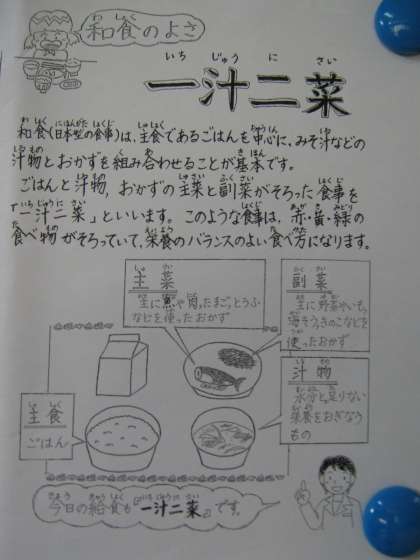 和食のよさ
一汁二菜
和食(日本型の食事)は、主食であるごはんを中心に、みそ汁などの
汁物とおかずを組み合わせることが基本です。
ごはんと汁物、おかずの主菜と副菜がそろった食事を
「一汁二菜」といいます。このような食事は、赤・黄・緑の
食べ物がそろっていて、栄養のバランスのよい食べ方になります。
主菜
主に魚や肉、たまご、とうふ
などを使ったおかず
副菜
主に野菜やいも、
海そう、きのこなどを
使ったおかず
汁物
水分と足りない
栄養をおぎなう
もの
主食
ごはん
今日の給食も『一汁二菜』です。